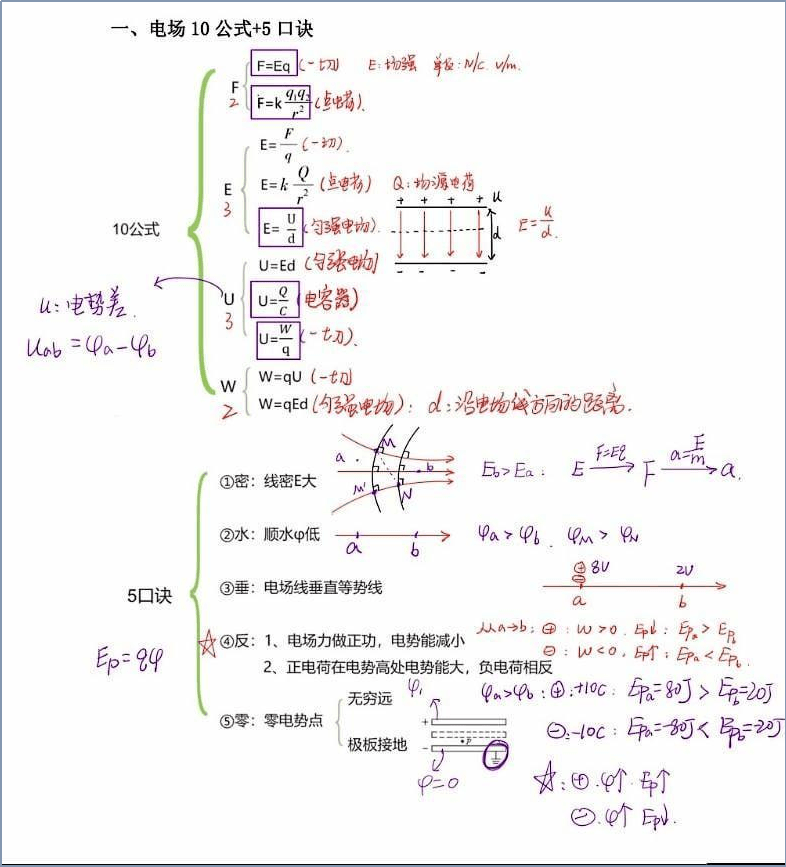 一、电场 10 公式+5 口诀
10公式
F
2
F=Eq (一切) E:场强 单位:N/C. V/m.
F=k q₁q₂/r² (点电荷).
E
3
E=F/q (一切).
E=k Q/r² (点电荷) Q:场源电荷
E=U/d (匀强电场).
+ + + + U
d
- - - -
E=U/d.
U
3
U=Ed (匀强电场)
U=Q/C (电容器)
U=W/q (一切).
U:电势差.
Uab=φa-φb
W
2
W=qU (一切)
W=qEd (匀强电场): d:沿电场线方向的距离.
5口诀
①密:线密E大
a b M M' N
Eb>Ea: E F=Eq F a=F/m a.
②水:顺水φ低
a b
φa>φb. φM>φN
③垂:电场线垂直等势线
⊕ 8V 2V
⊖
a b
④反:1、电场力做正功,电势能减小
从a→b:⊕:W>0. Ep↓: Epa>Epb
⊖:W<0. Ep↑: Epa<Epb.
2、正电荷在电势高处电势能大,负电荷相反
Ep=qφ
φa>φb:⊕:+10C: Epa=80J>Epb=20J
⊖:-10C: Epa=-80J<Epb=-20J
⑤零:零电势点
无穷远
极板接地
φ₁
+
-
P
φ=0
☆:⊕.φ↑.Ep↑
⊖.φ↑ Ep↓.